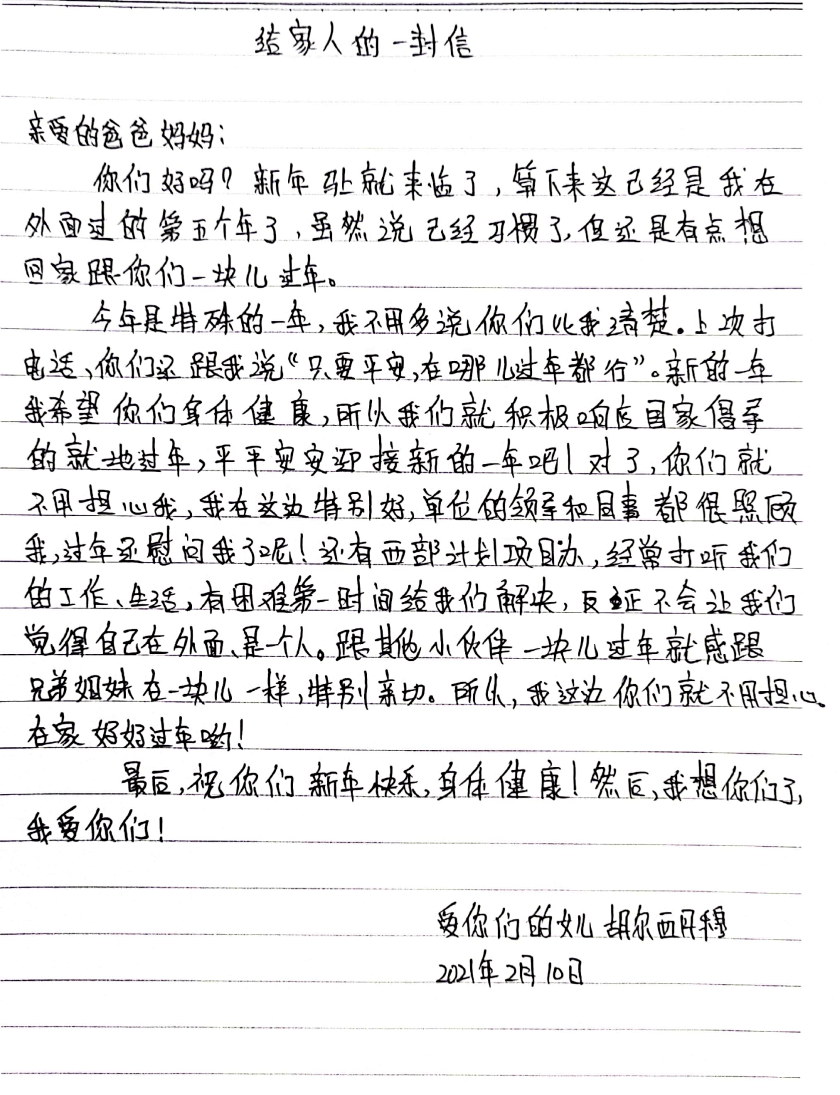 给家人的一封信
亲爱的爸爸妈妈：
你们好吗？新年马上就来临了，算下来这已经是我在
外面过的第五个年了，虽然说已经习惯了，但还是有点想
回家跟你们一块儿过年。
今年是特殊的一年，我不用多说你们比我清楚。上次打
电话，你们还跟我说“只要平安，在哪儿过年都行”。新的一年
我希望你们身体健康，所以我们就积极响应国家倡导
的就地过年，平平安安迎接新的一年吧！对了，你们就
不用担心我，我在这边特别好，单位的领导和同事都很照顾
我，过年还慰问我了呢！还有西部计划项目办，经常打听我们
的工作、生活，有困难第一时间给我们解决，反正不会让我们
觉得自己在外面、是一个人。跟其他小伙伴一块儿过年就感跟
兄弟姐妹在一块儿一样，特别亲切。所以，我这边你们就不用担心、
在家好好过年哟！
最后，祝你们新年快乐，身体健康！然后，我想你们了，
我爱你们！
爱你们的女儿 胡尔西丹·穆
2021年2月10日